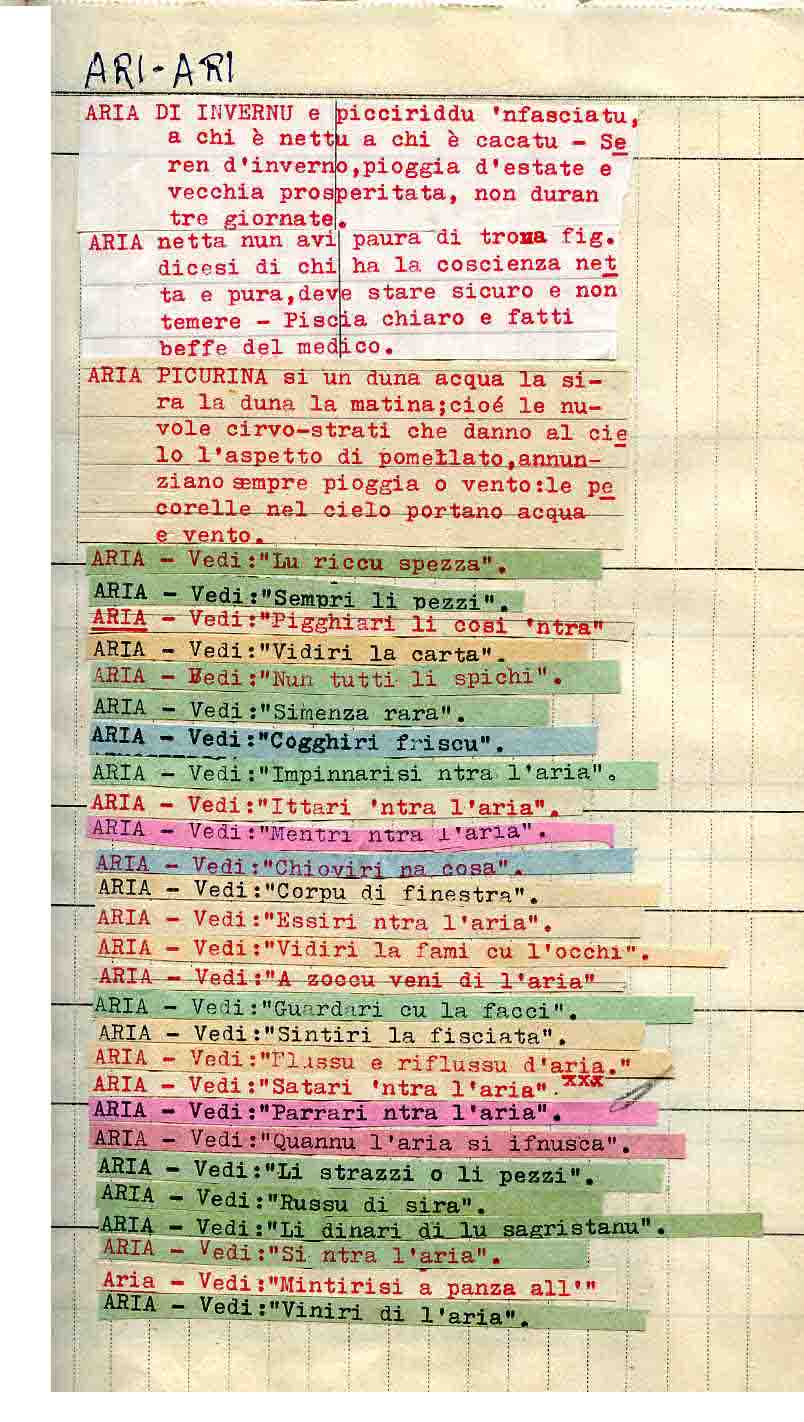 ARI-ARI
ARIA DI INVERNU e picciriddu 'nfasciatu,
a chi è nettu a chi è cacatu - Se
ren d'inverno,pioggia d'estate e
vecchia prosperitata, non duran
tre giornate.
ARIA netta nun avi paura di trona fig.
dicesi di chi ha la coscienza net
ta e pura,deve stare sicuro e non
temere - Piscia chiaro e fatti
beffe del medico.
ARIA PICURINA si un duna acqua la si-
ra la duna la matina;cioé le nu-
vole cirvo-strati che danno al cie
lo l'aspetto di pomellato,annun-
ziano sempre pioggia o vento:le pe
corelle nel cielo portano acqua
e vento.
ARIA - Vedi:"Lu riccu spezza".
ARIA - Vedi:"Sempri li pezzi".
ARIA - Vedi:"Pigghiari li cosi 'ntra"
ARIA - Vedi:"Vidiri la carta".
ARIA - Vedi:"Nun tutti li spichi".
ARIA - Vedi:"Simenza rara".
ARIA - Vedi:"Cogghiri friscu".
ARIA - Vedi:"Impinnarisi ntra l'aria".
ARIA - Vedi:"Ittari 'ntra l'aria".
ARIA - Vedi:"Mentri ntra l'aria".
ARIA - Vedi:"Chioviri na cosa".
ARIA - Vedi:"Corpu di finestra".
ARIA - Vedi:"Essiri ntra l'aria".
ARIA - Vedi:"Vidiri la fami cu l'occhi".
ARIA - Vedi:"A zoccu veni di l'aria"
ARIA - Vedi:"Guardari cu la facci".
ARIA - Vedi:"Sintiri la fisciata".
ARIA - Vedi:"Flussu e riflussu d'aria."
ARIA - Vedi:"Satari 'ntra l'aria".xxx
ARIA - Vedi:"Parrari ntra l'aria".
ARIA - Vedi:"Quannu l'aria si ifnusca".
ARIA - Vedi:"Li strazzi o li pezzi".
ARIA - Vedi:"Russu di sira".
ARIA - Vedi:"Li dinari di lu sagristanu".
ARIA - Vedi:"Si ntra l'aria".
Aria - Vedi:"Mintirisi a panza all'"
ARIA - Vedi:"Viniri di l'aria".